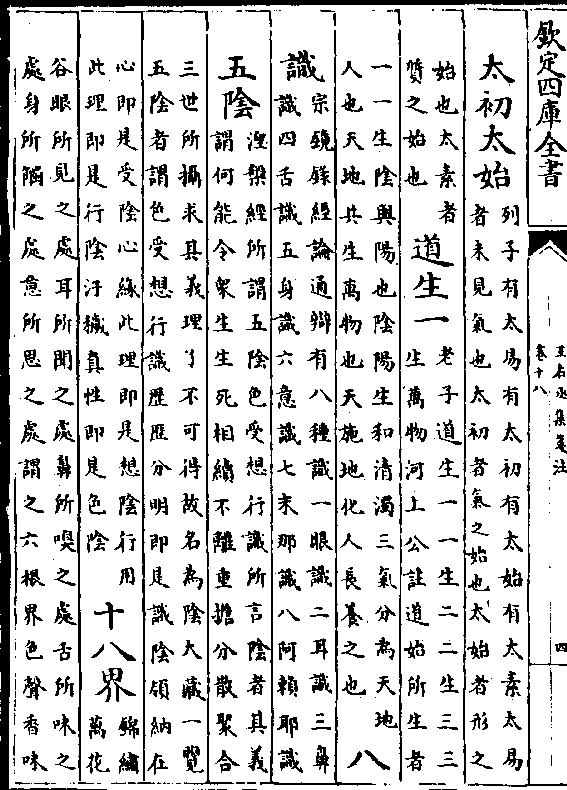 欽定四庫全書
王右丞集箋注
卷十八
四
太初太始
列子有太易有太初有太始有太素太易
者未見氣也太初者氣之始也太始者形之
始也太素者
質之始也
道生一
老子道生一一生二二生三三
生萬物河上公註道始所生者
一一生陰與陽也陰陽生和清濁三氣分為天地
人也天地共生萬物也天施地化人長養之也
八
識
宗鏡錄經論通辯有八種識一眼識二耳識三鼻
識四舌識五身識六意識七末那識八阿賴耶識
五陰
涅槃經所謂五陰色受想行識所言陰者其義
謂何能令衆生生死相續不離重擔分散聚合
三世所攝求其義理了不可得故名為陰大藏一覽
五陰者謂色受想行識歷歷分明即是識陰領納在
心即是受陰心緣此理即是想陰行用
此理即是行陰汙穢真性即是色陰
十八界
錦繡
萬花
谷眼所見之處耳所聞之處鼻所嗅之處舌所味之
處身所觸之處意所思之處謂之六根界色聲香味